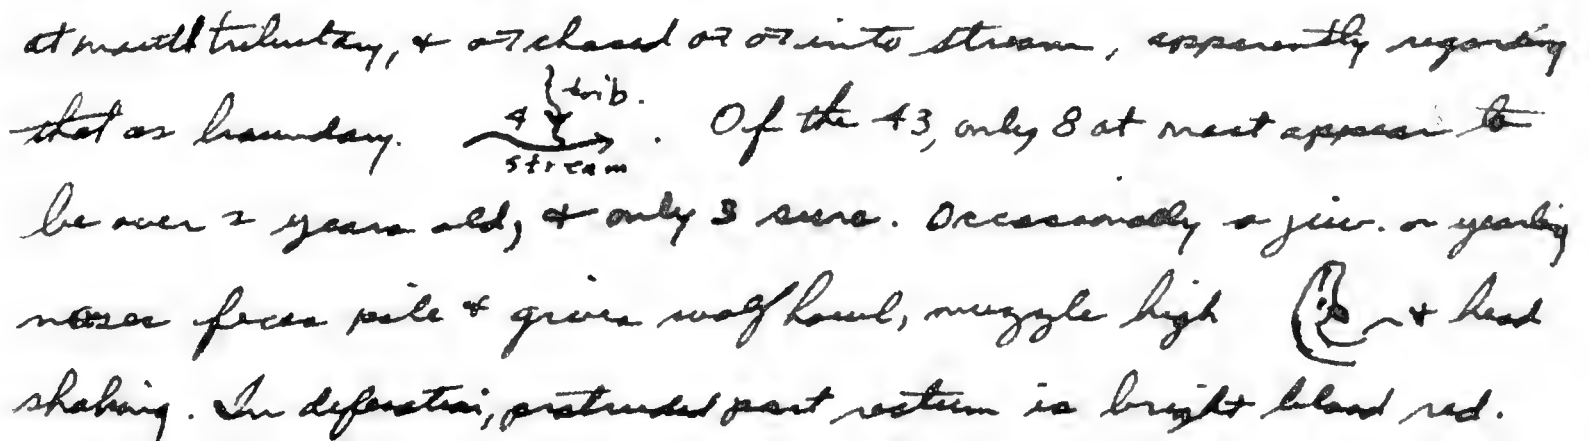 at mouth tributary, & ♂ chased ♂ ♂ into stream, apparently regarding
that as boundary. 4 trib. stream . Of the 43, only 8 at most appear to
be over 2 years old, & only 3 sure. Occasionally a juv. or yearling
noses feces pile & gives wolf howl, muzzle high & head
shaking. In defecation, protruded part rectum is bright blood red.